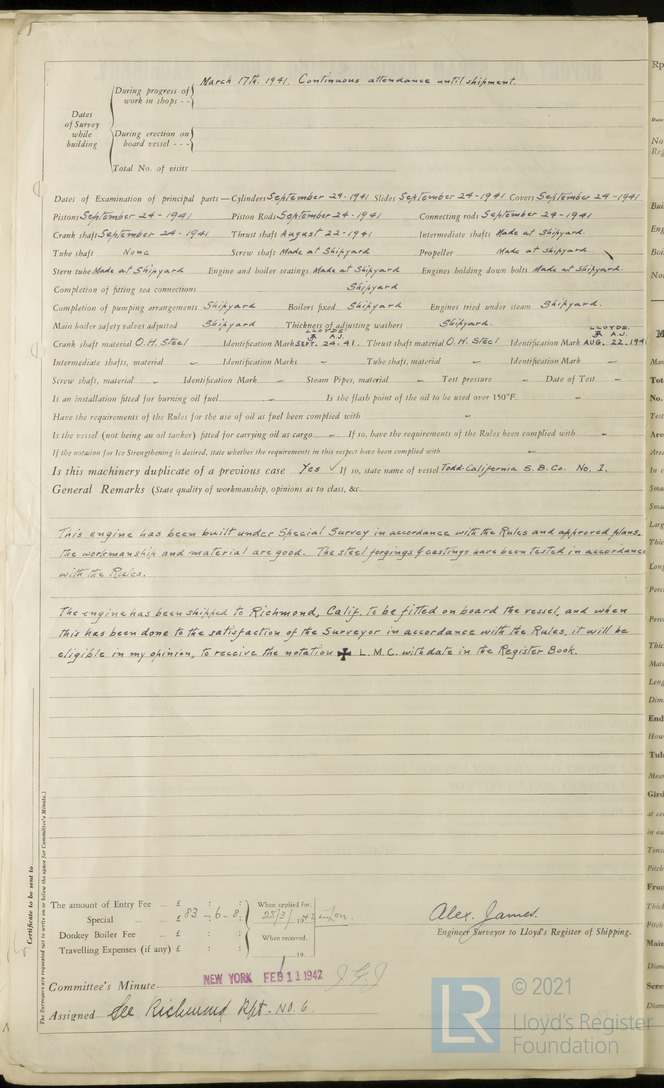 March 17th. 1941. Continuous attendance until shipment.
Dates of Survey while building
During progress of work in shops - -
During erection on board vessel - - -
Total No. of visits
Dates of Examination of principal parts—Cylinders September 24-1941 Slides September 24-1941 Covers September 24-1941
Pistons September 24-1941 Piston Rods September 24-1941 Connecting rods September 24-1941
Crank shaft September 24-1941 Thrust shaft August 22-1941 Intermediate shafts Made at Shipyard.
Tube shaft None Screw shaft Made at Shipyard Propeller Made at Shipyard.
Stern tube Made at Shipyard Engine and boiler seatings Made at Shipyard Engines holding down bolts Made at Shipyard.
Completion of fitting sea connections Shipyard
Completion of pumping arrangements Shipyard Boilers fixed Shipyard Engines tried under steam Shipyard.
Main boiler safety valves adjusted Shipyard Thickness of adjusting washers Shipyard.
Crank shaft material O.H. Steel Identification Mark LLOYDS A.J. SEPT. 24-41. Thrust shaft material O.H. Steel Identification Mark LLOYDS. A.J. AUG. 22.194
Intermediate shafts, material - Identification Marks - Tube shaft, material - Identification Mark -
Screw shaft, material - Identification Mark - Steam Pipes, material - Test pressure - Date of Test -
Is an installation fitted for burning oil fuel - Is the flash point of the oil to be used over 150°F. -
Have the requirements of the Rules for the use of oil as fuel been complied with -
Is the vessel (not being an oil tanker) fitted for carrying oil as cargo - If so, have the requirements of the Rules been complied with -
If the notation for Ice Strengthening is desired, state whether the requirements in this respect have been complied with -
Is this machinery duplicate of a previous case Yes ✓ If so, state name of vessel Todd-California S.B.Co. No. 1.
General Remarks (State quality of workmanship, opinions as to class, &c.
This engine has been built under Special Survey in accordance with the Rules and approved plans.
the workmanship and material are good. The steel forgings & castings have been tested in accordance
with the Rules.
The engine has been shipped to Richmond, Calif. to be fitted on board the vessel, and when
this has been done to the satisfaction of the Surveyor in accordance with the Rules, it will be
eligible in my opinion, to receive the notation ✠ L.M.C. with date in the Register Book.
Certificate to be sent to
(The Surveyors are requested not to write on or below the space for Committee's Minute.)
The amount of Entry Fee .. £ : :
Special .. £ 83-6-8
Donkey Boiler Fee £ : :
Travelling Expenses (if any) £ : :
When applied for,
23/3/1942
When received,
19
Alex. James.
Engineer Surveyor to Lloyd's Register of Shipping.
Committee's Minute NEW YORK FEB 11 1942
Assigned See Richmond Rpt. No. 6.
LR
© 2021
Lloyd's Register
Foundation